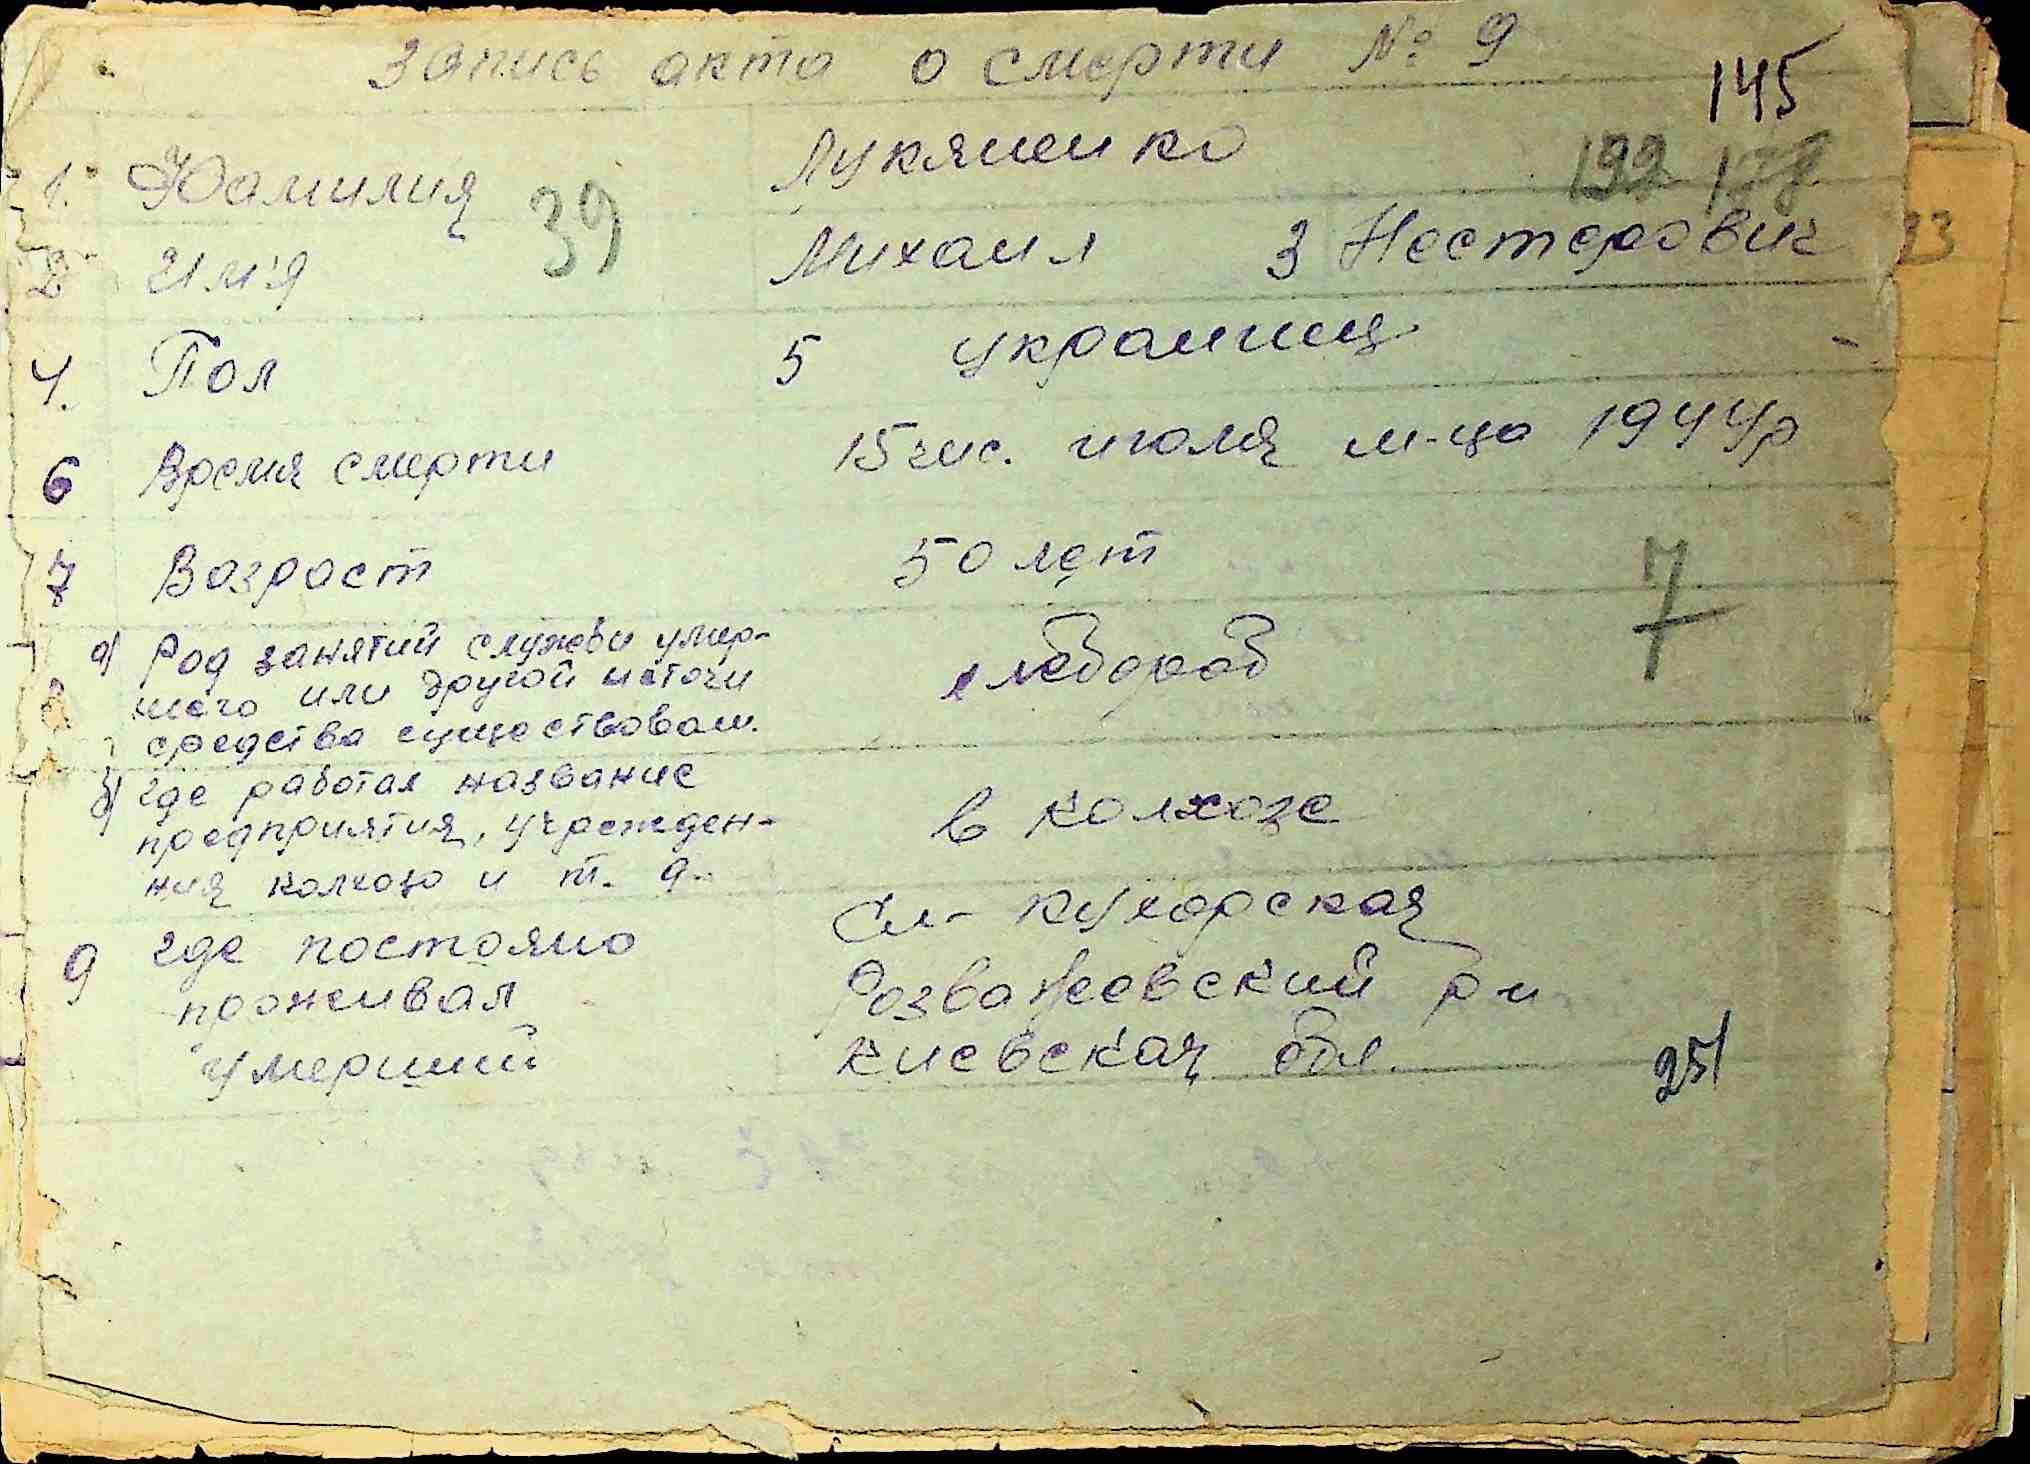 Запись акта о смерти № 9
145
1. Фамилия 39 Лукяненко 192 178
2 Им'я Михаил 3 Нестерович
4. Пол 5 украинец
6 Время смерти 15 чис. июля м-ца 1944р
7 Возраст 50 лет 7
8 а) Род занятий служеби умер-
шего или другой источн
средства существован.
хлебороб
б) где работал название
предприятия, учрежден-
ния колхоза и т. д.
в колхозе
9 где постояно
проживал
умерший
Сл- Кухарская
Розважевский р-н
Киевская обл.
251